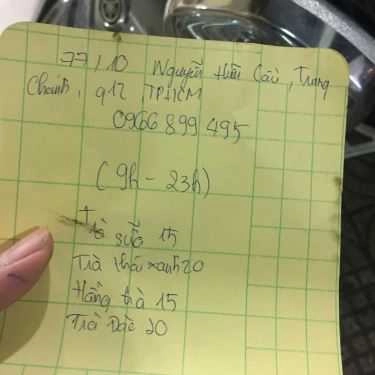 77/10 Nguyễn Hữu Cầu, Trung
Chánh, q12, TPHCM
0966 899 495
(9h - 23h)
sữa 15
Trà thái xanh 20
Hồng trà 15
Trà Đác 20